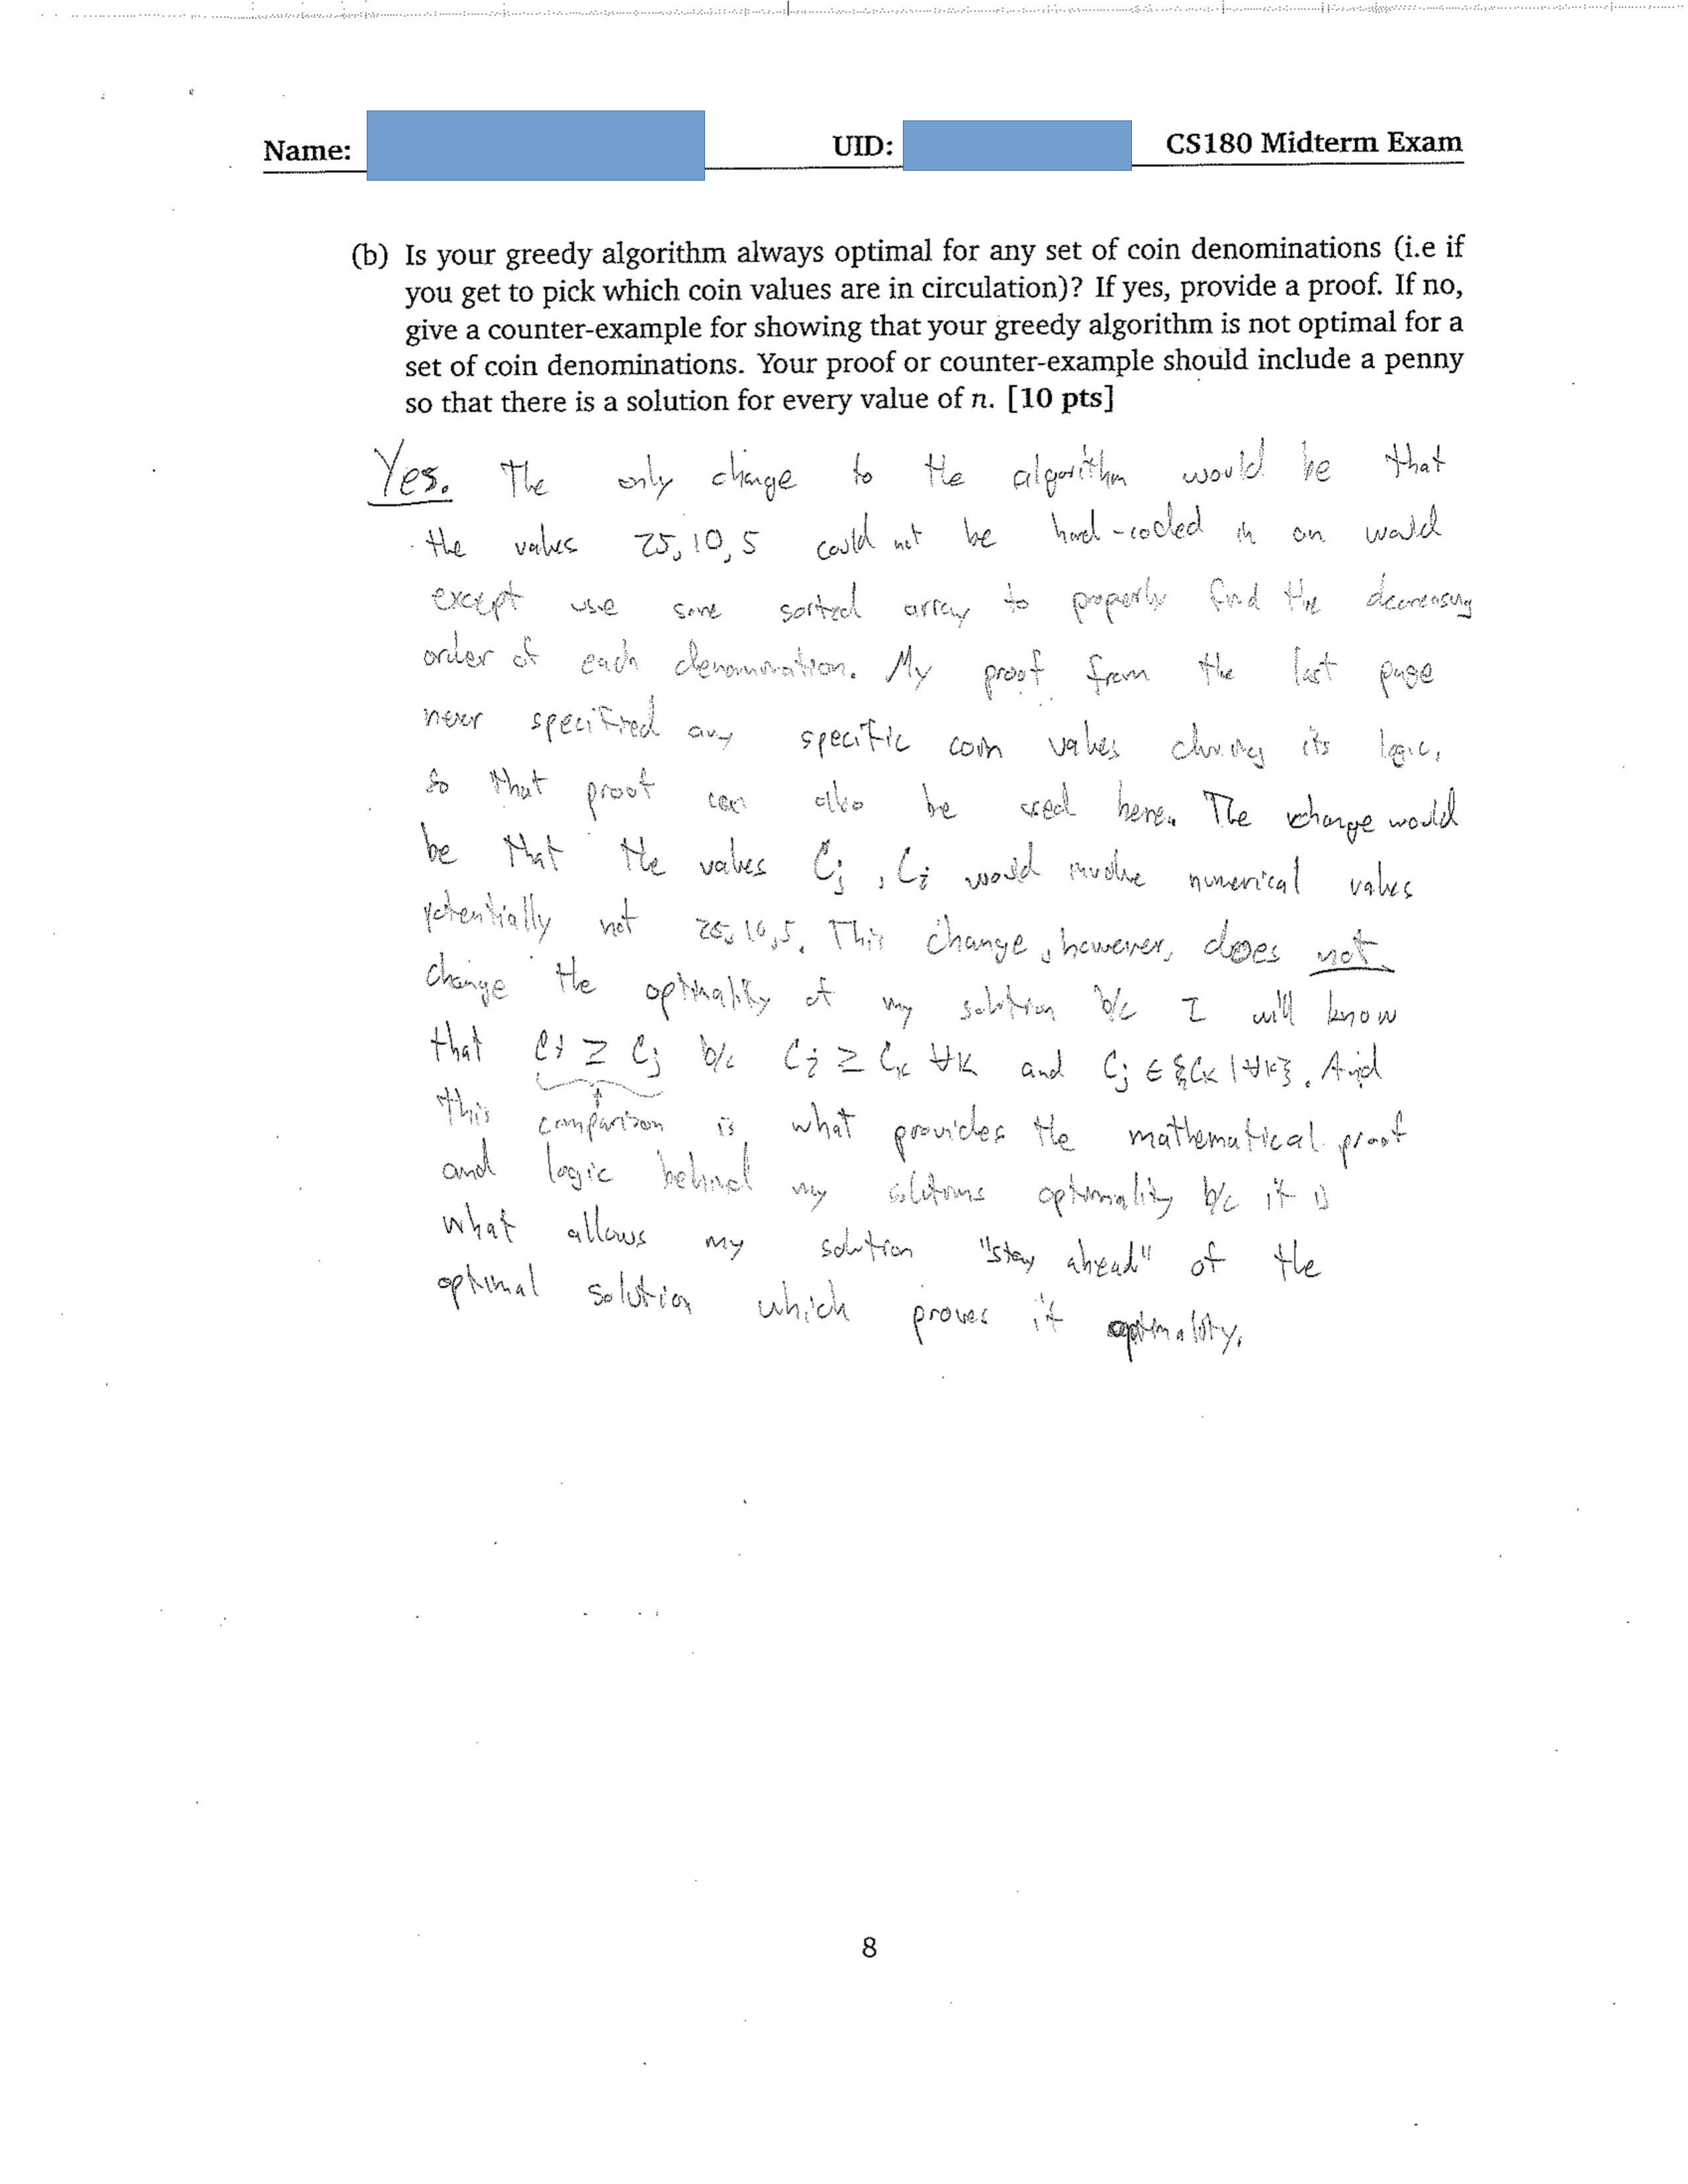 Name: UID: CS180 Midterm Exam
(b) Is your greedy algorithm always optimal for any set of coin denominations (i.e if
you get to pick which coin values are in circulation)? If yes, provide a proof. If no,
give a counter-example for showing that your greedy algorithm is not optimal for a
set of coin denominations. Your proof or counter-example should include a penny
so that there is a solution for every value of n. [10 pts]
Yes. The only change to the algorithm would be that
the values 25, 10, 5 could not be hard-coded in an would
except use some sorted array to properly find the decreasing
order of each denomination. My proof from the last page
never specified any specific coin values during its logic,
so that proof can also be used here. The change would
be that the values Cj, Ci would involve numerical values
potentially not 25, 10, 5. This change, however, does not
change the optimality of my solution b/c I will know
that Ci ≥ Cj b/c Ci ≥ Ck ∀k and Cj ∈ {Ck | ∀k}. And
this comparison is what provides the mathematical proof
and logic behind my solutions optimality b/c it is
what allows my solution "stay ahead" of the
optimal solution which proves it optimality.
8